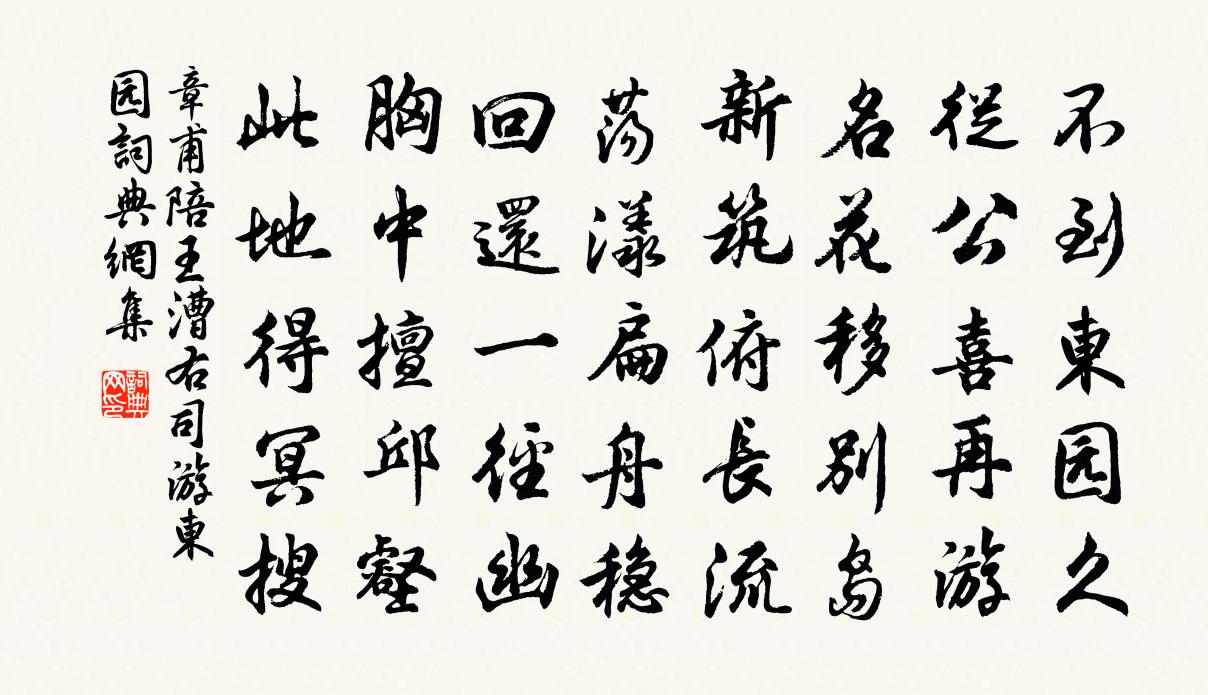 不到東园久
從公喜再游
名花移別岛
新筑俯長流
荡漾扁舟穏
回還一徑幽
胸中擅邱壑
此地得冥搜
章甫陪王漕右司游東
园詞典網集
詞典
网印